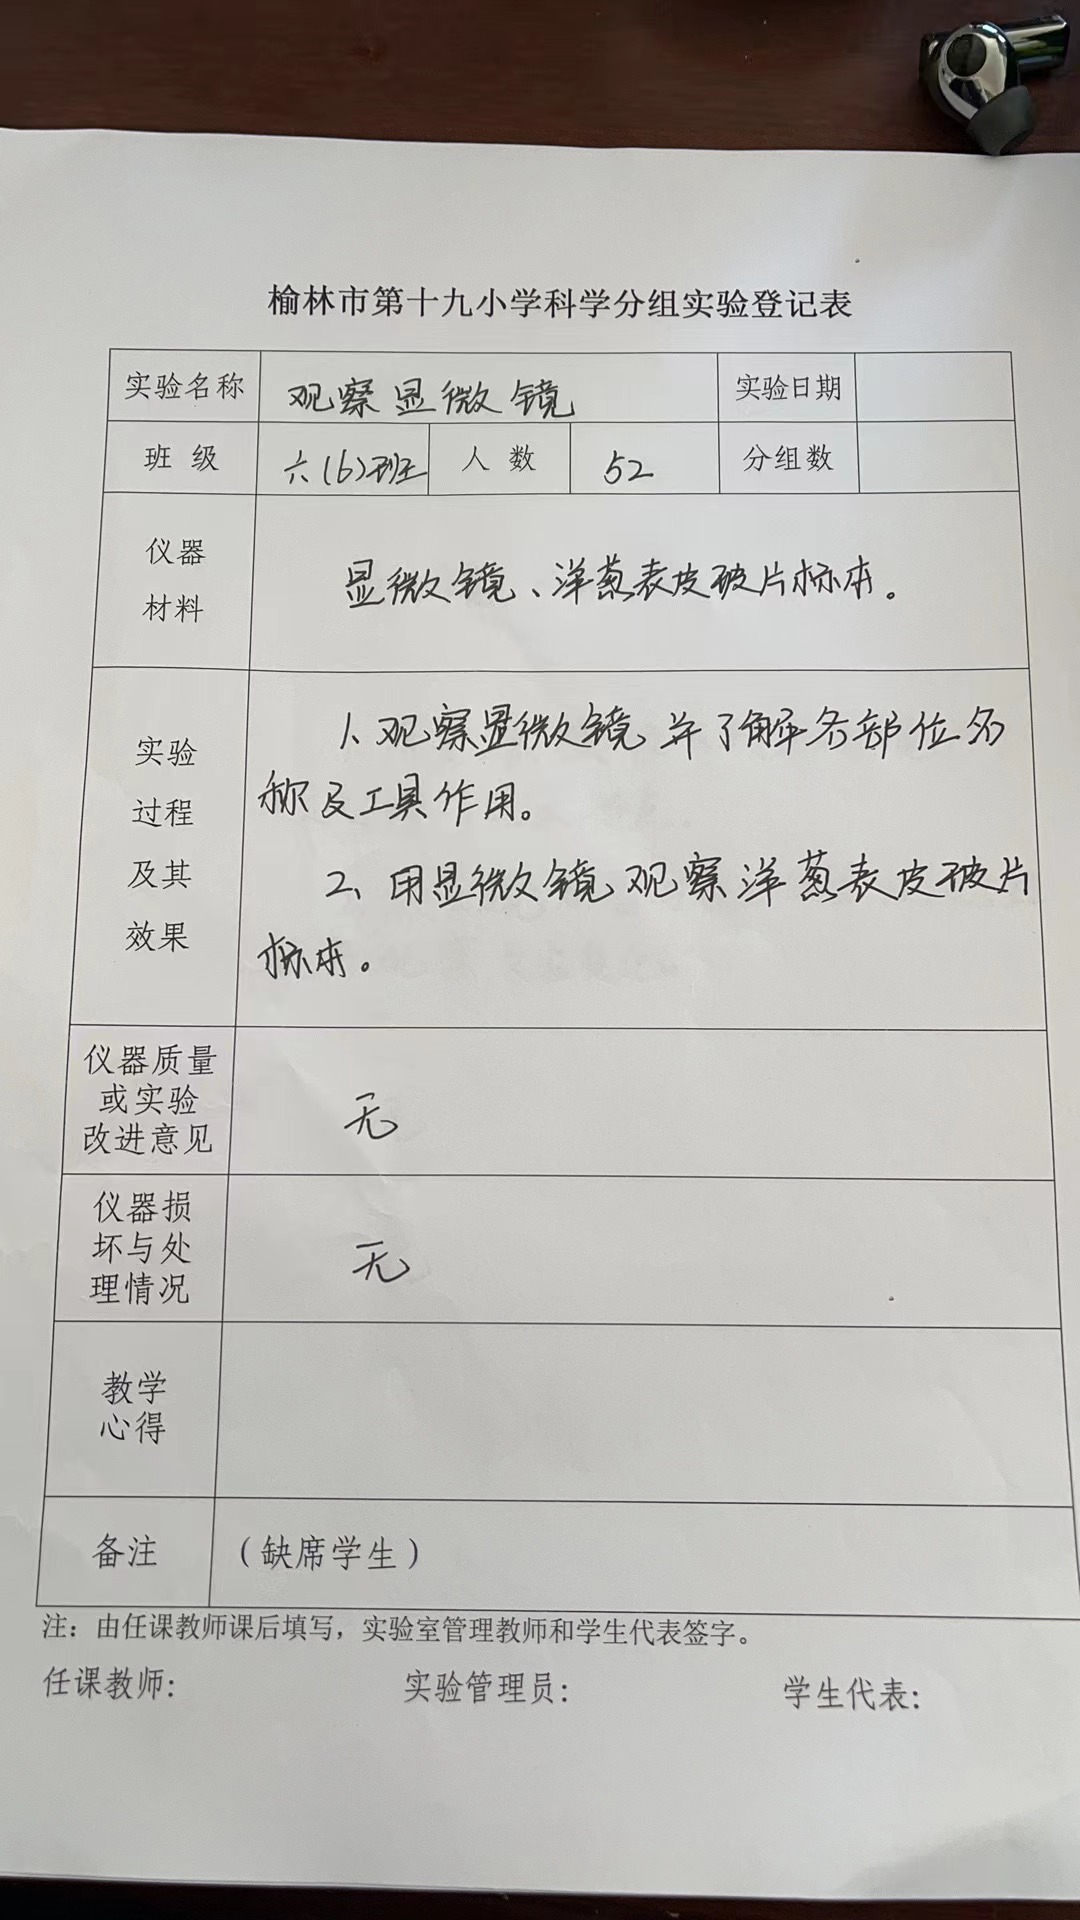 榆林市第十九小学科学分组实验登记表
实验名称 观察显微镜 实验日期
班级 六(6)班 人数 52 分组数
仪器
材料
显微镜、洋葱表皮玻片标本。
实验
过程
及其
效果
1、观察显微镜并了解各部位名
称及工具作用。
2、用显微镜观察洋葱表皮玻片
标本。
仪器质量
或实验
改进意见
无
仪器损
坏与处
理情况
无
教学
心得
备注 (缺席学生)
注：由任课教师课后填写，实验室管理教师和学生代表签字。
任课教师: 实验管理员: 学生代表: